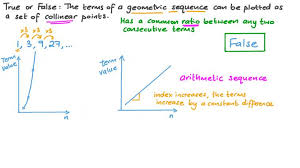 True or False: The terms of a geometric sequence can be plotted as
a set of collinear points.
Has a common ratio between any two
consecutive terms
×3 ×3 ×3
1, 3, 9, 27, ...
False
Term
value
n
Term
value
n
arithmetic sequence
index increases, the terms
increase by a constant difference